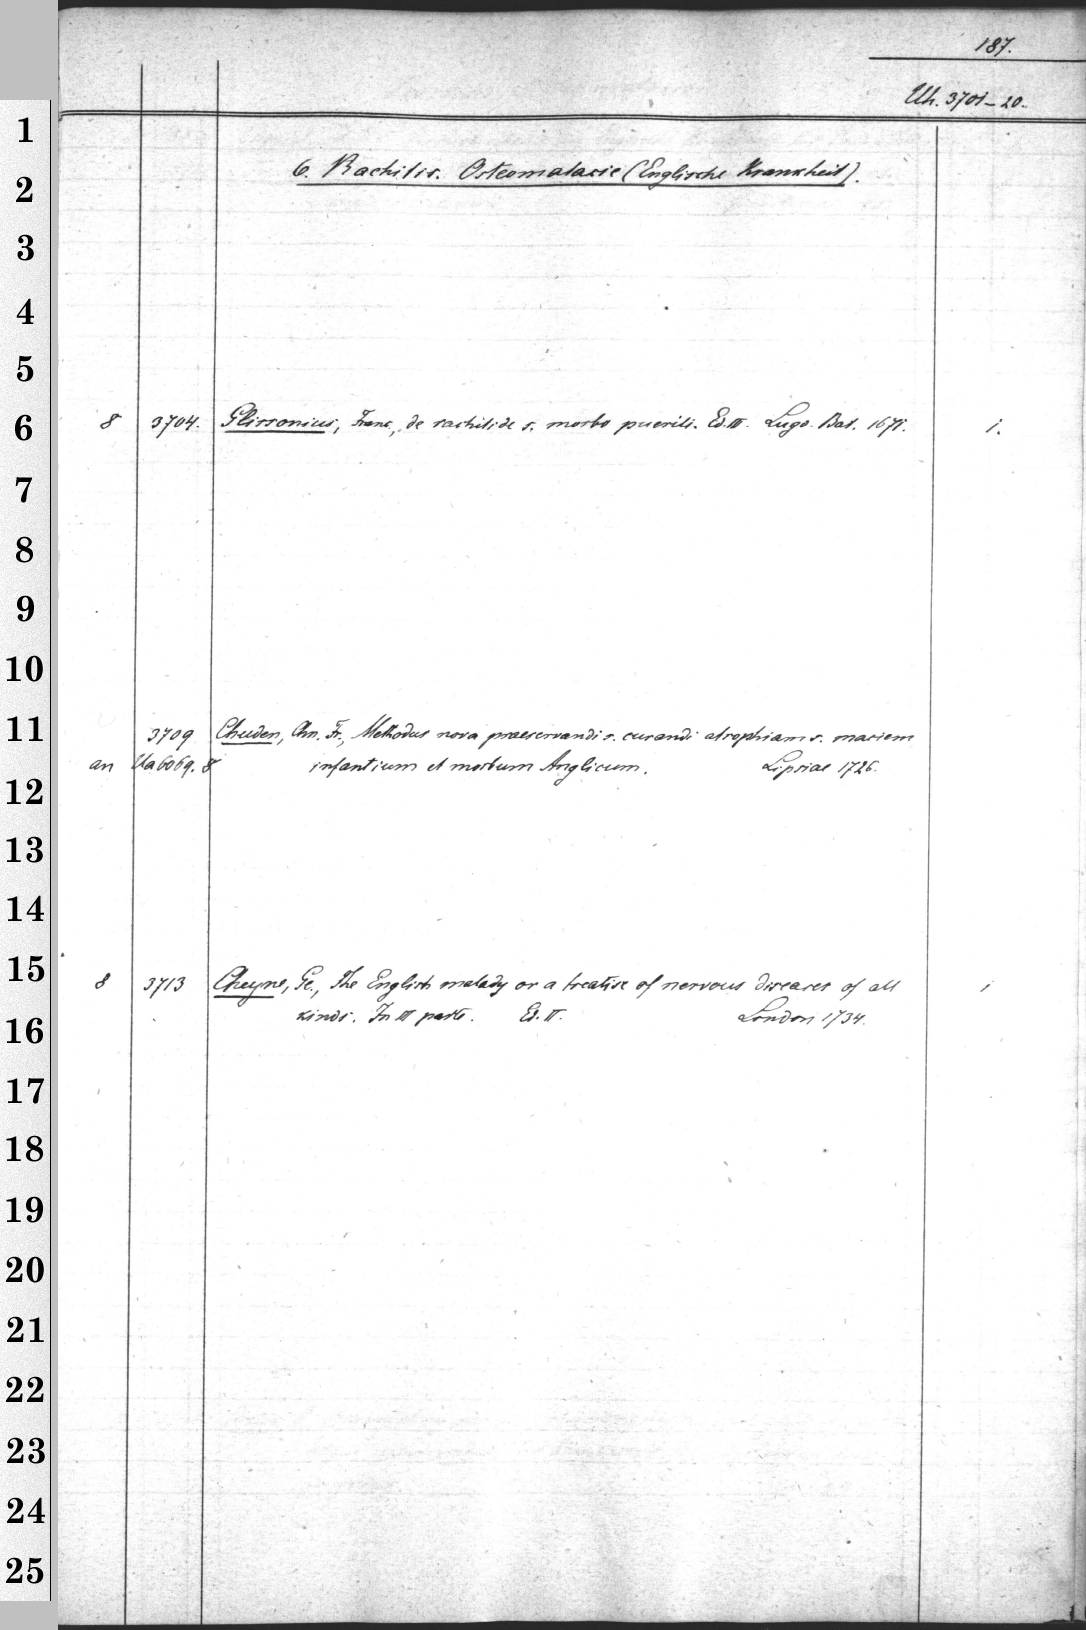 187.
Uh. 3701-20.
1
2
6. Rachitis. Osteomalacie (Englische Krankheit).
3
4
5
6
8 3704. Glissonius, Franc., de rachitide s. morbo puerili. Ed. III. Lugd. Bat. 1671. 1.
7
8
9
10
11
3709 Chuden, Chn. Fr., Methodus nova praeservandi s. curandi atrophiam s. maciem
an Ua6069. 8 infantium et morbum Anglicum. Lipsiae 1726.
12
13
14
15
8 3713 Cheyne, Ge., The English malady or a treatise of nervous diseases of all 1
kinds. In III parts. Ed. II. London 1734.
16
17
18
19
20
21
22
23
24
25